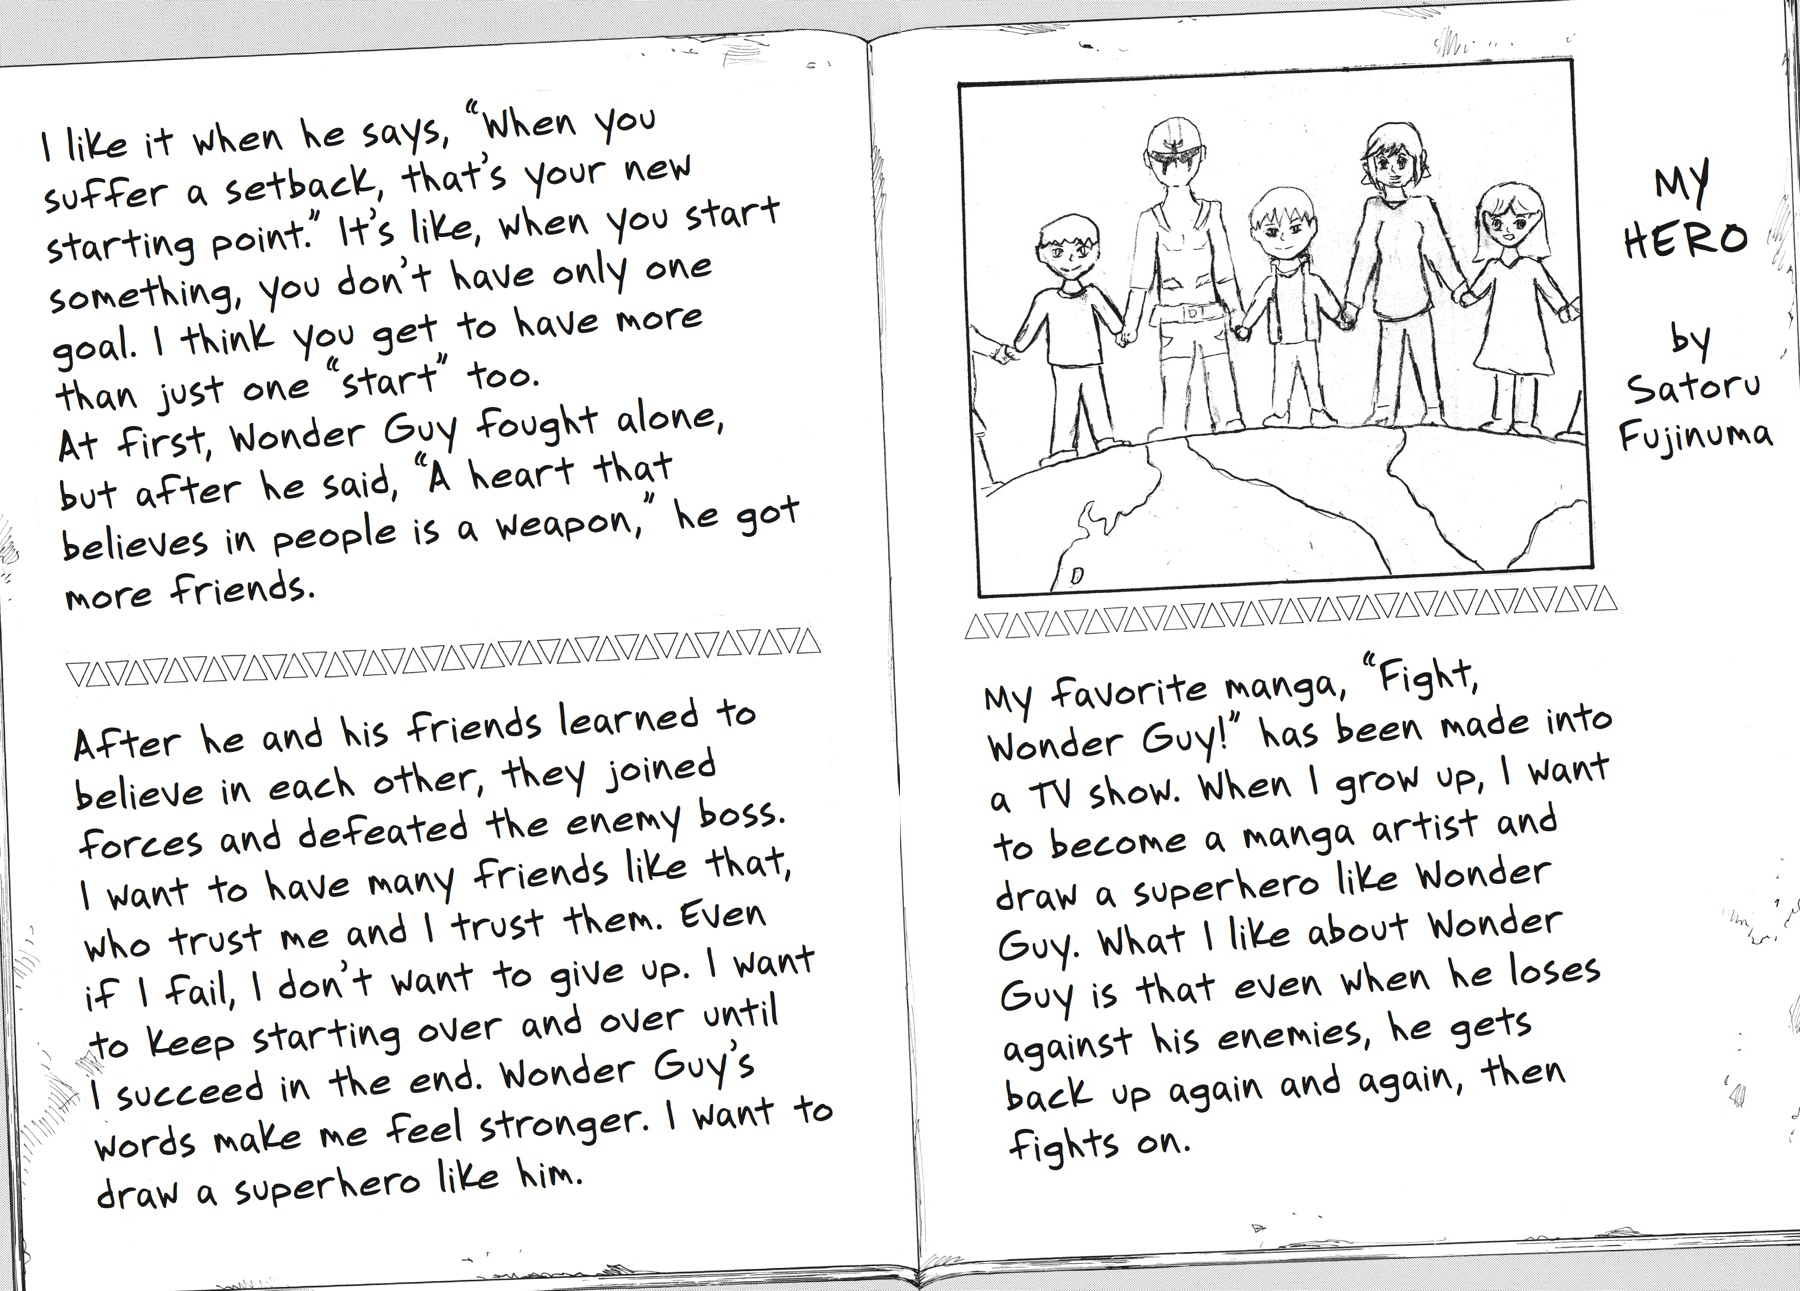 MY
HERO
by
Satoru
Fujinuma
My favorite manga, "Fight,
Wonder Guy!" has been made into
a TV show. When I grow up, I want
to become a manga artist and
draw a superhero like Wonder
Guy. What I like about Wonder
Guy is that even when he loses
against his enemies, he gets
back up again and again, then
fights on.
I like it when he says, "When you
suffer a setback, that's your new
starting point." It's like, when you start
something, you don't have only one
goal. I think you get to have more
than just one "start" too.
At first, Wonder Guy fought alone,
but after he said, "A heart that
believes in people is a weapon," he got
more friends.
After he and his friends learned to
believe in each other, they joined
forces and defeated the enemy boss.
I want to have many friends like that,
who trust me and I trust them. Even
if I fail, I don't want to give up. I want
to keep starting over and over until
I succeed in the end. Wonder Guy's
words make me feel stronger. I want to
draw a superhero like him.